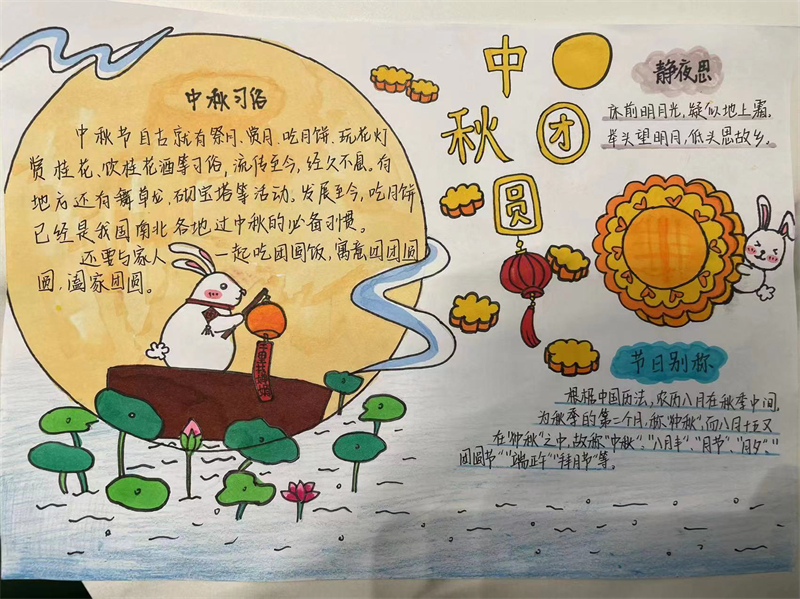 中秋习俗
中秋节自古就有祭月、赏月、吃月饼、玩花灯
赏桂花、饮桂花酒等习俗，流传至今，经久不息。有
地方还有舞草龙，砌宝塔等活动。发展至今，吃月饼
已经是我国南北各地过中秋的必备习惯。
还要与家人一起吃团圆饭，寓意团团圆
圆，阖家团圆。
中秋
团圆
静夜思
床前明月光，疑似地上霜。
举头望明月，低头思故乡。
节日别称
根据中国历法，农历八月在秋季中间，
为秋季的第二个月，称"仲秋"，而八月十五又
在"仲秋"之中，故称"中秋"、"八月半"、"月节"、"月夕"、"
团圆节""端正午""拜月节"等。